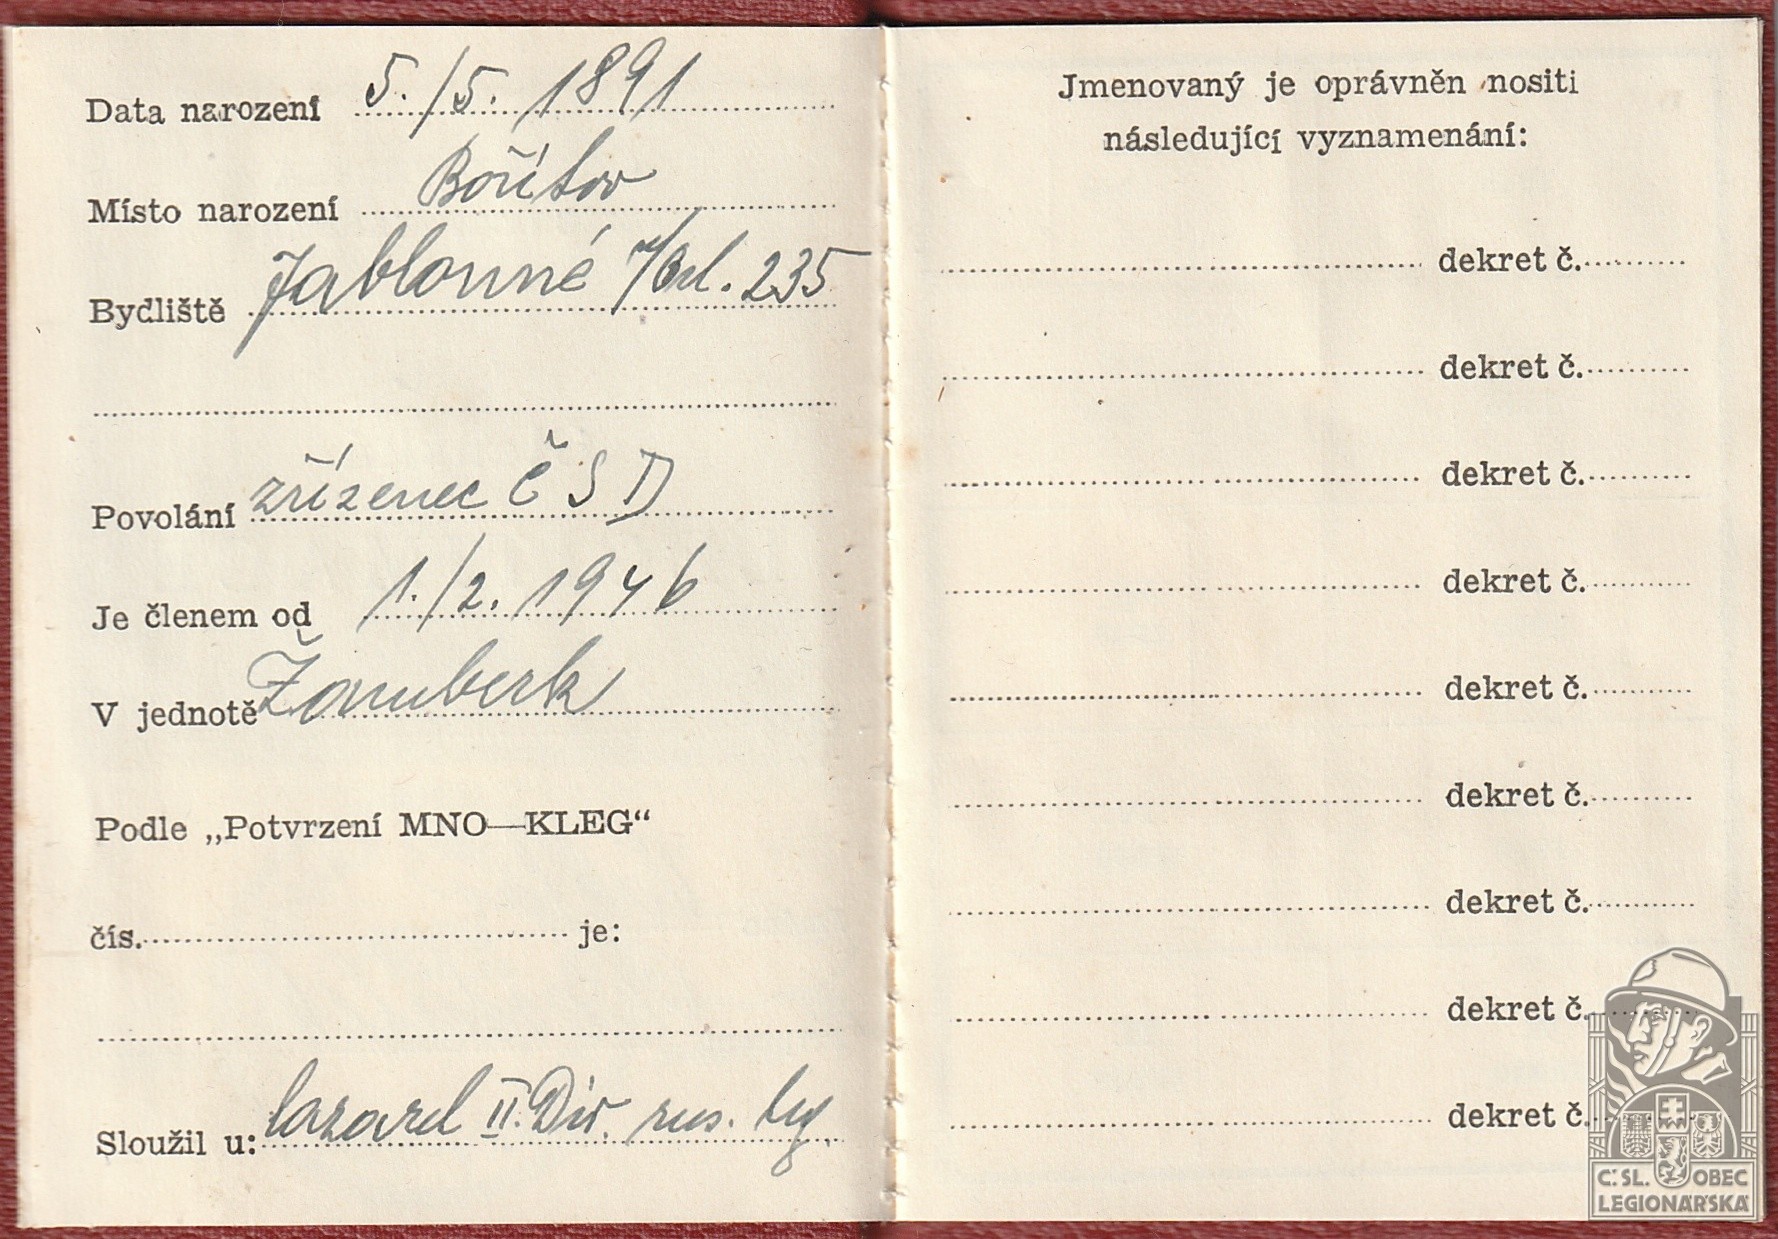 Data narození 5./5. 1891
Místo narození Bořitov
Bydliště Jablonné n/Orl. 235
Povolání zřízenec ČSD
Je členem od 1./2. 1946
V jednotě Žamberk
Podle „Potvrzení MNO—KLEG“
čís. je:
Sloužil u: lazaret II. Div. rus. leg.
Jmenovaný je oprávněn nositi
následující vyznamenání:
dekret č.
dekret č.
dekret č.
dekret č.
dekret č.
dekret č.
dekret č.
dekret č.
dekret č.
Č. SL. OBEC
LEGIONÁŘSKÁ